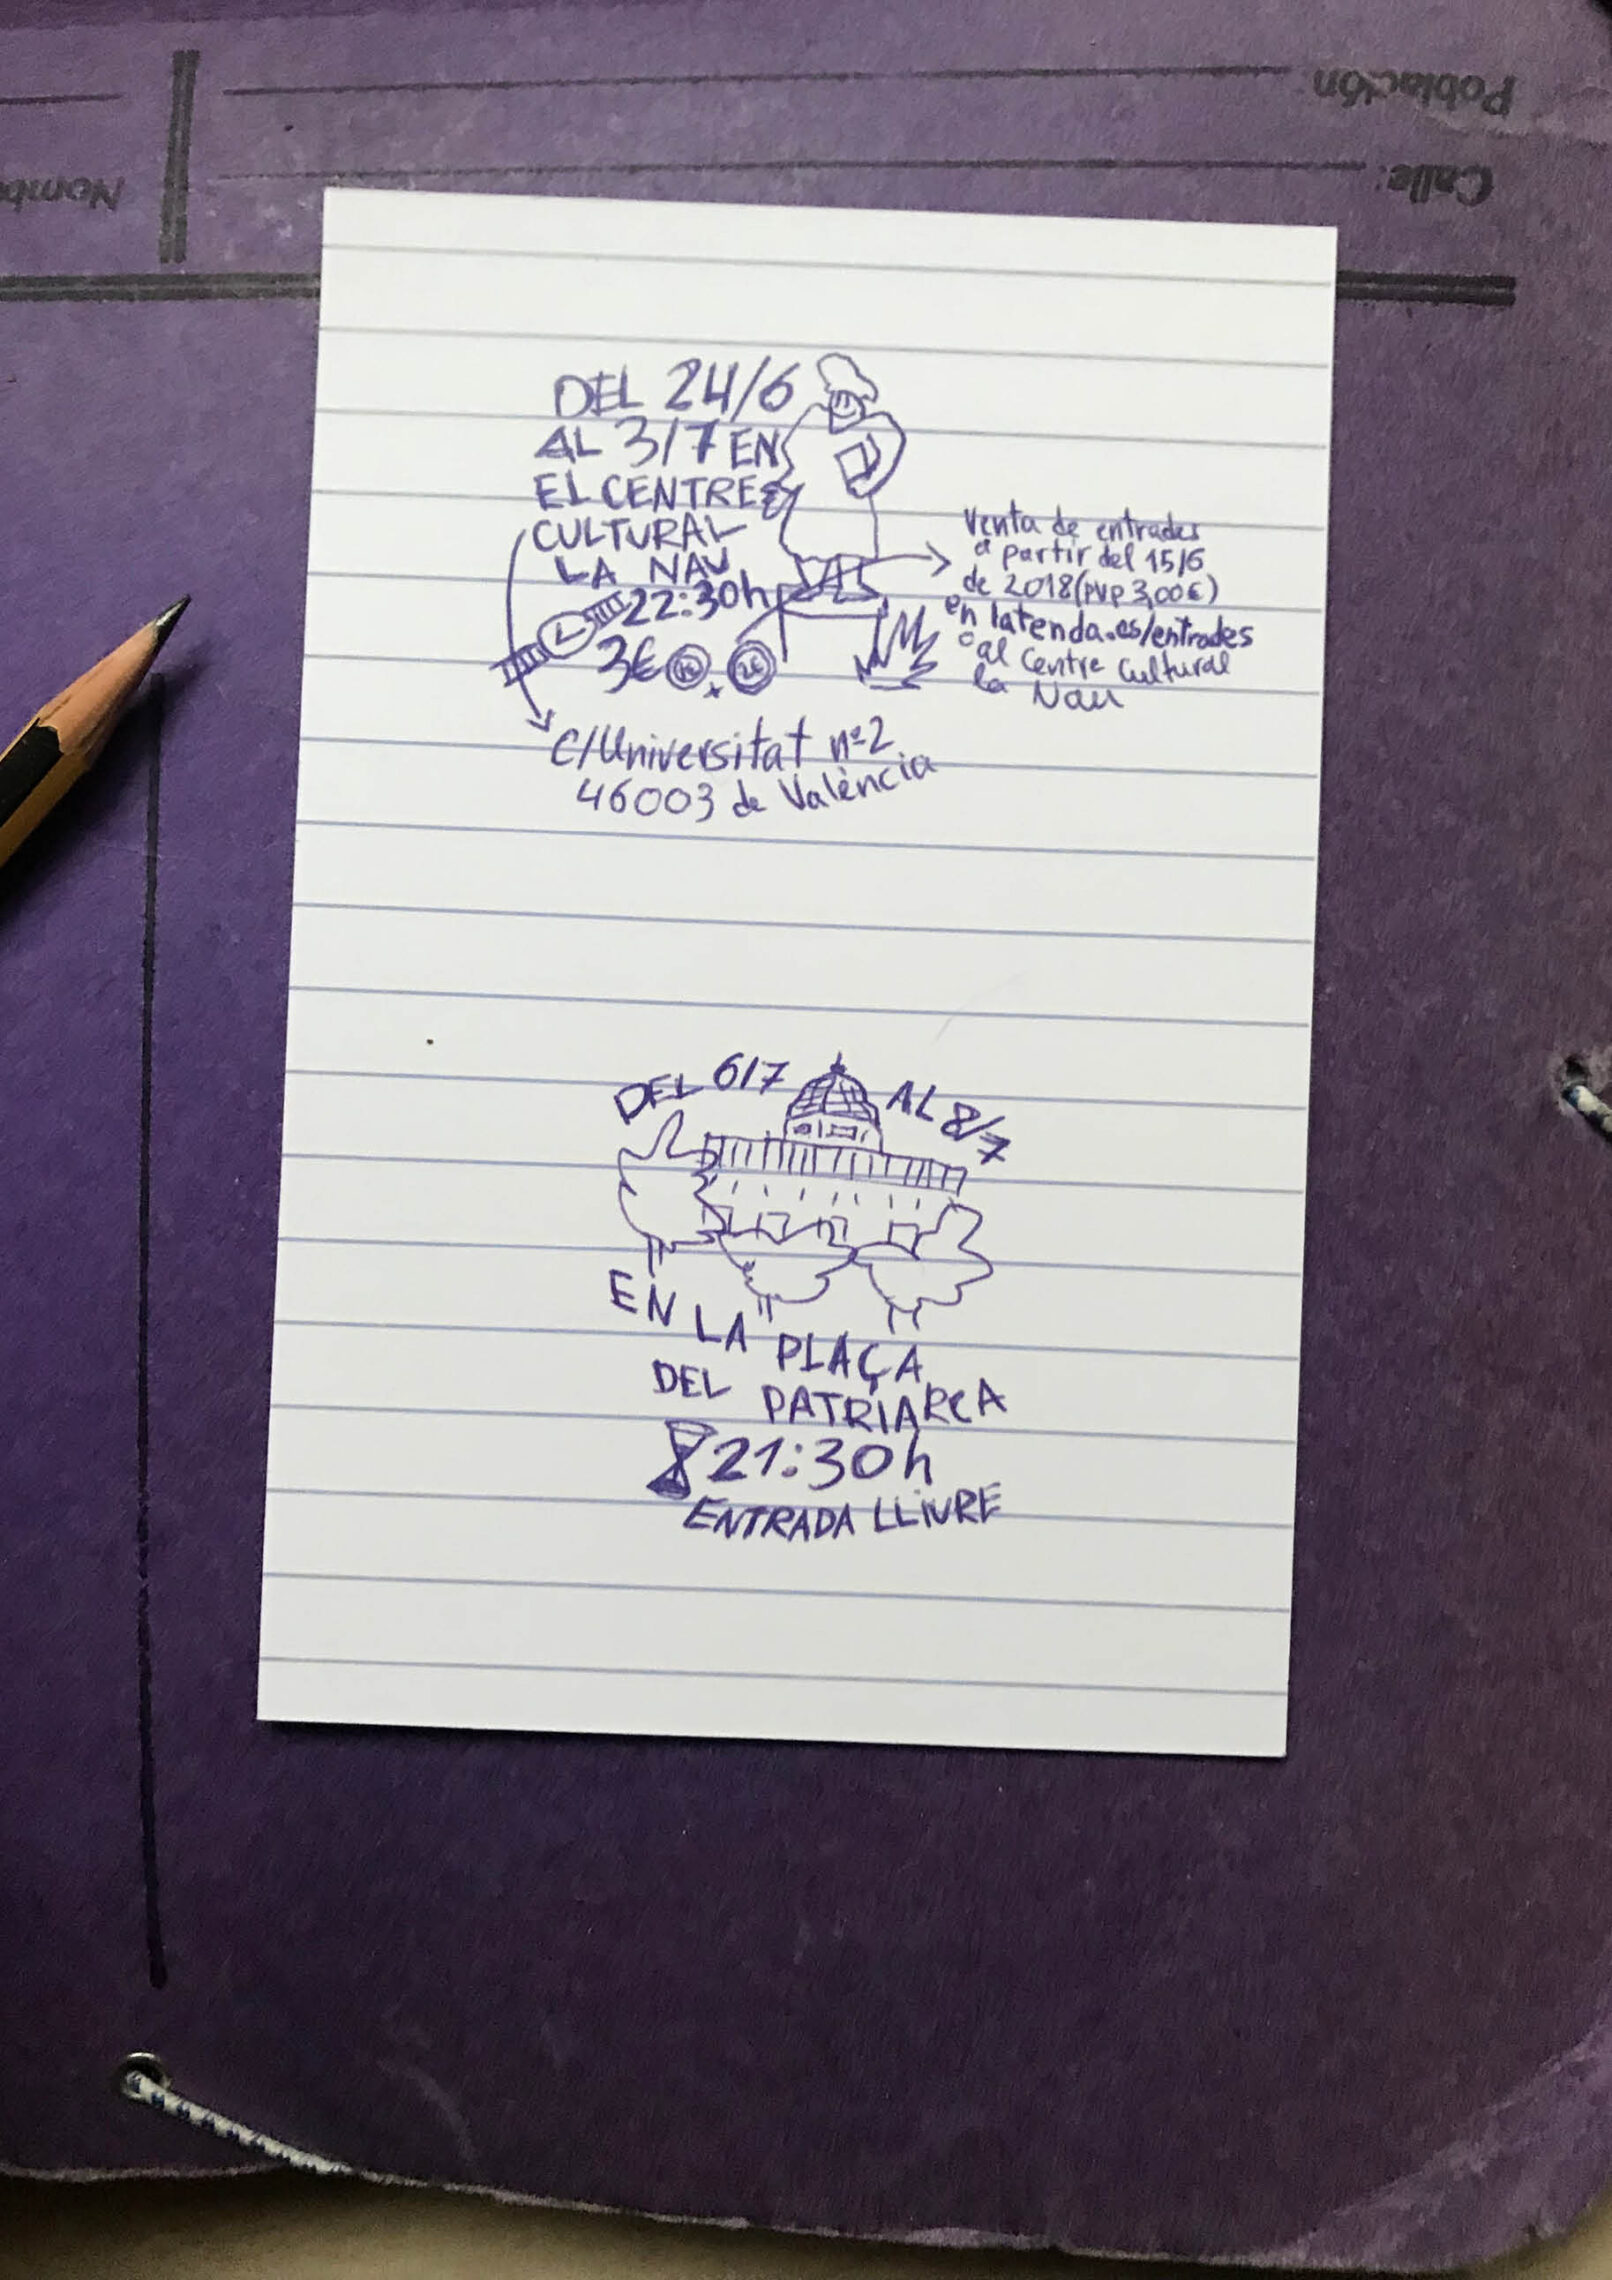 Población
Calle:
Nomb
DEL 24/6
AL 3/7 EN
EL CENTRE
CULTURAL
LA NAU
22:30h
3€ 1€ + 2€
Venta de entrades
a partir del 15/6
de 2018 (PVP 3,00€)
en latenda.es/entrades
o al Centre Cultural
la Nau
C/Universitat nº2
46003 de València
DEL 6/7 AL 8/7
EN LA PLAÇA
DEL PATRIARCA
21:30h
ENTRADA LLIURE